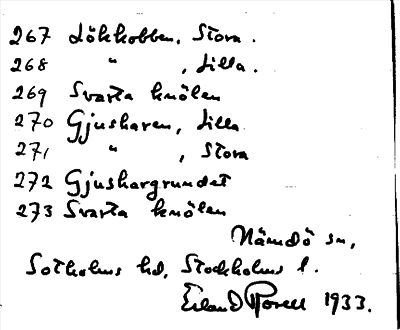 267 Lökkobben, Stora.
268 " , Lilla.
269 Svarta knölen
270 Gjusharen, Lilla
271 " , Stora
272 Gjushargrundet
273 Svarta knölen
Nämdö sn,
Sotholms hd, Stockholms l.
Erland Rosell 1933.